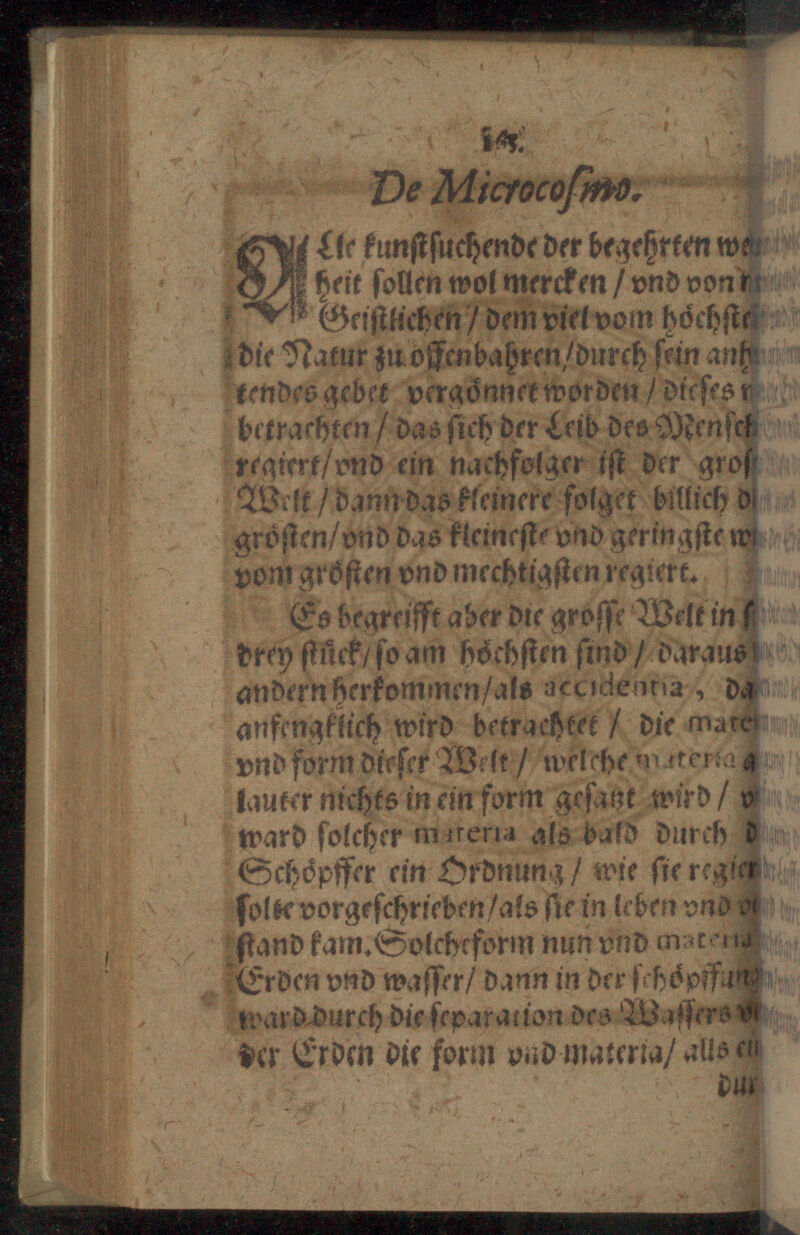 De Microcoſmo.
ALle kunſtſuchende der begehrten
heit ſollen wol mercken / vnd von
Geiſtlichen / dem viel vom hoͤchſte
die Natur zu offenbahren / durch ſein anh
tendes gebet vergoͤnnet worden / dieſes
betrachten / das ſich der Leib des Menſch
regiert / vnd ein nachfolger iſt der groſſ
Welt / dann das kleinere folget billich d
groͤſten / vnd das kleineſte vnd geringſte w
vom groͤſten vnd mechtigſten regiert.
Es begreifft aber die groſſe Welt in
drey ſtuͤck / ſo am hoͤchſten ſind / daraus
andern herkommen / als accidentia, da
anfengklich wird betrachtet / die mate
vnd form dieſer Welt / welche materia a
lauter nichts in ein form geſatzt wird / v
ward ſolcher materia als bald durch d
Schoͤpffer ein Ordnung / wie ſie regie
ſolte vorgeſchrieben / als ſie in leben vnd
ſtand kam. Solche form nun vnd materia
Erden vnd waſſer / dann in der ſchoͤpffung
ward durch die ſeparation des Waſſers
der Erden die form vnd materia / alls